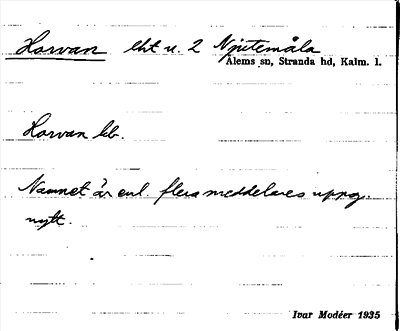 Horvan lht u. 2 Njutemåla
Ålems sn, Stranda hd, Kalm. l.
Horvan bb.
Namnet är enl. flera meddelares uppg.
nytt.
Ivar Modéer 1935